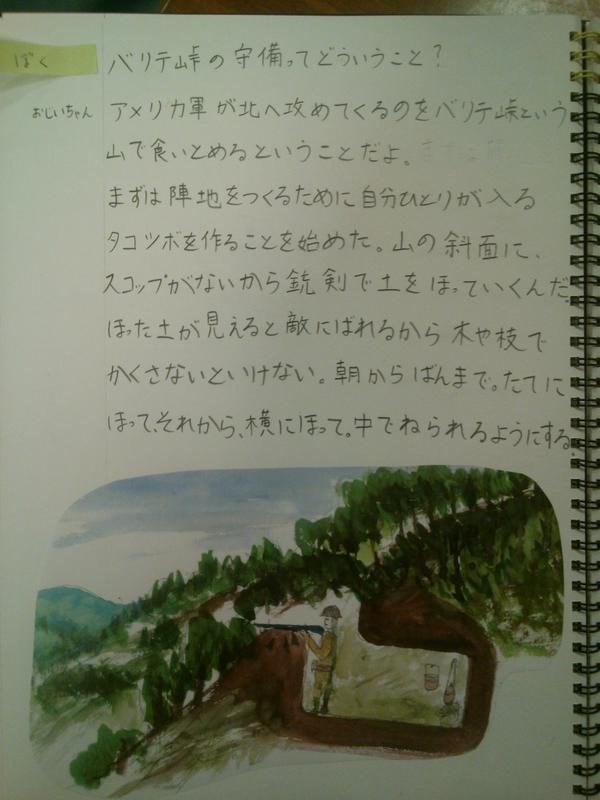 ぼく
バリテ峠の守備ってどういうこと？
おじいちゃん
アメリカ軍が北へ攻めてくるのをバリテ峠という
山で食いとめるということだよ。
まずは陣地をつくるために自分ひとりが入る
タコツボを作ることを始めた。山の斜面に、
スコップがないから銃剣で土をほっていくんだ。
ほった土が見えると敵にばれるから木や枝で
かくさないといけない。朝からばんまで。たてに
ほって、それから、横にほって。中でねられるようにする。